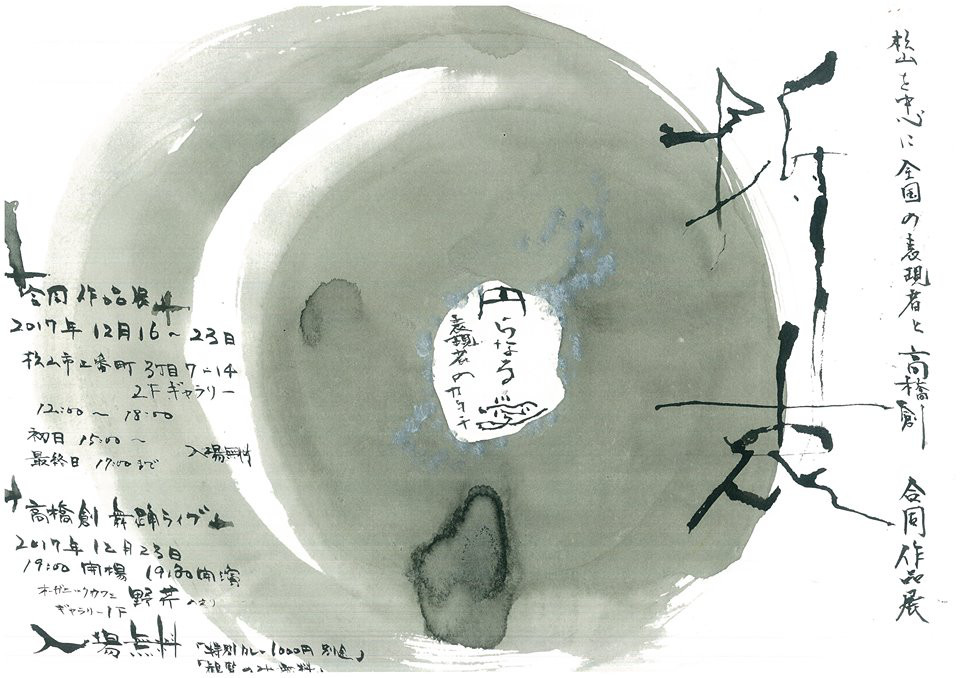 松山を中心に全国の表現者と高橋創 合同作品展
円
らなる愛
表現者のカタチ
合同作品展
2017年12月16～23日
松山市三番町3丁目7-14
2Fギャラリー
12:00～18:00
初日 15:00～
最終日 17:00まで
入場無料
高橋創 舞踊ライブ
2017年12月23日
19:00開場 19:30開演
オーガニックカフェ 野芹
ギャラリー1F
入場無料
「特別カレー1000円別途」
「観覧のみ無料」